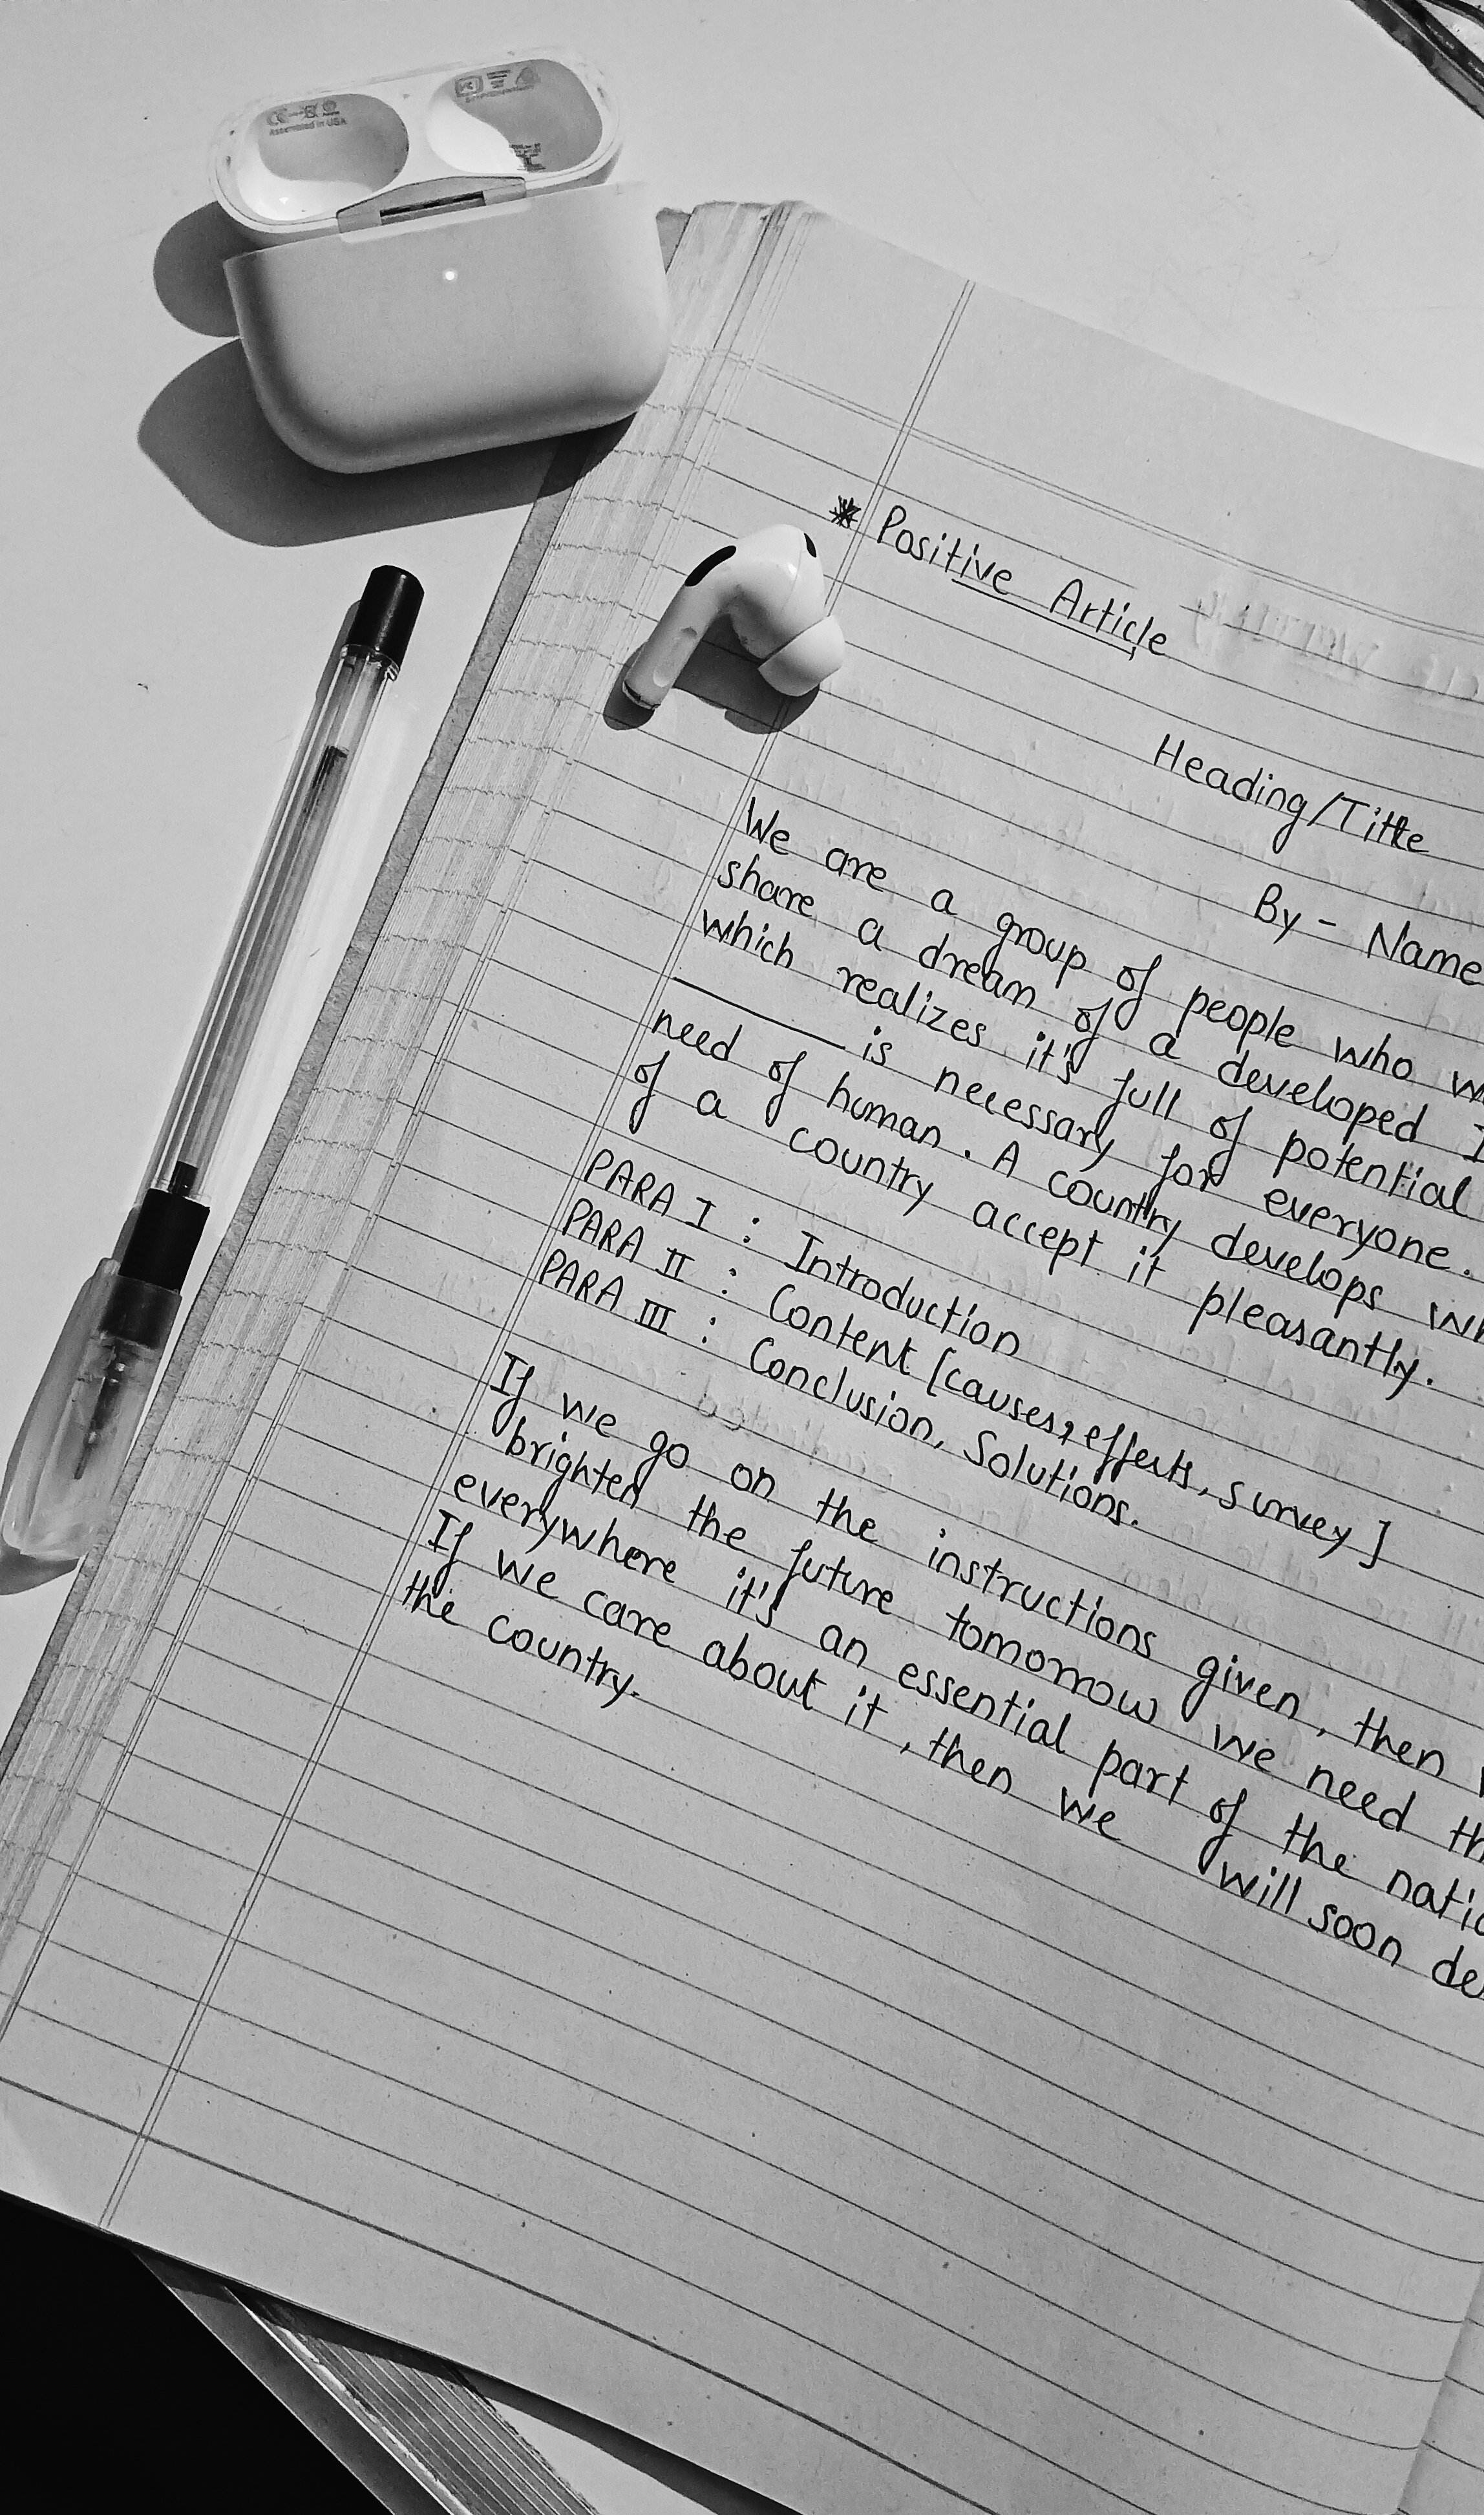 Assembled in USA
* Positive Article
Heading/Title
By - Name
We are a group of people who
share a dream of a developed
which realizes it's full of potential
______ is necessary for everyone.
need of human. A country develops
of a country accept it pleasantly.
PARA I : Introduction
PARA II : Content [causes, effects, survey]
PARA III : Conclusion, Solutions.
If we go on the instructions given, then
brighten the future tomorrow we need
everywhere it's an essential part of the
If we care about it, then we will soon
the country.